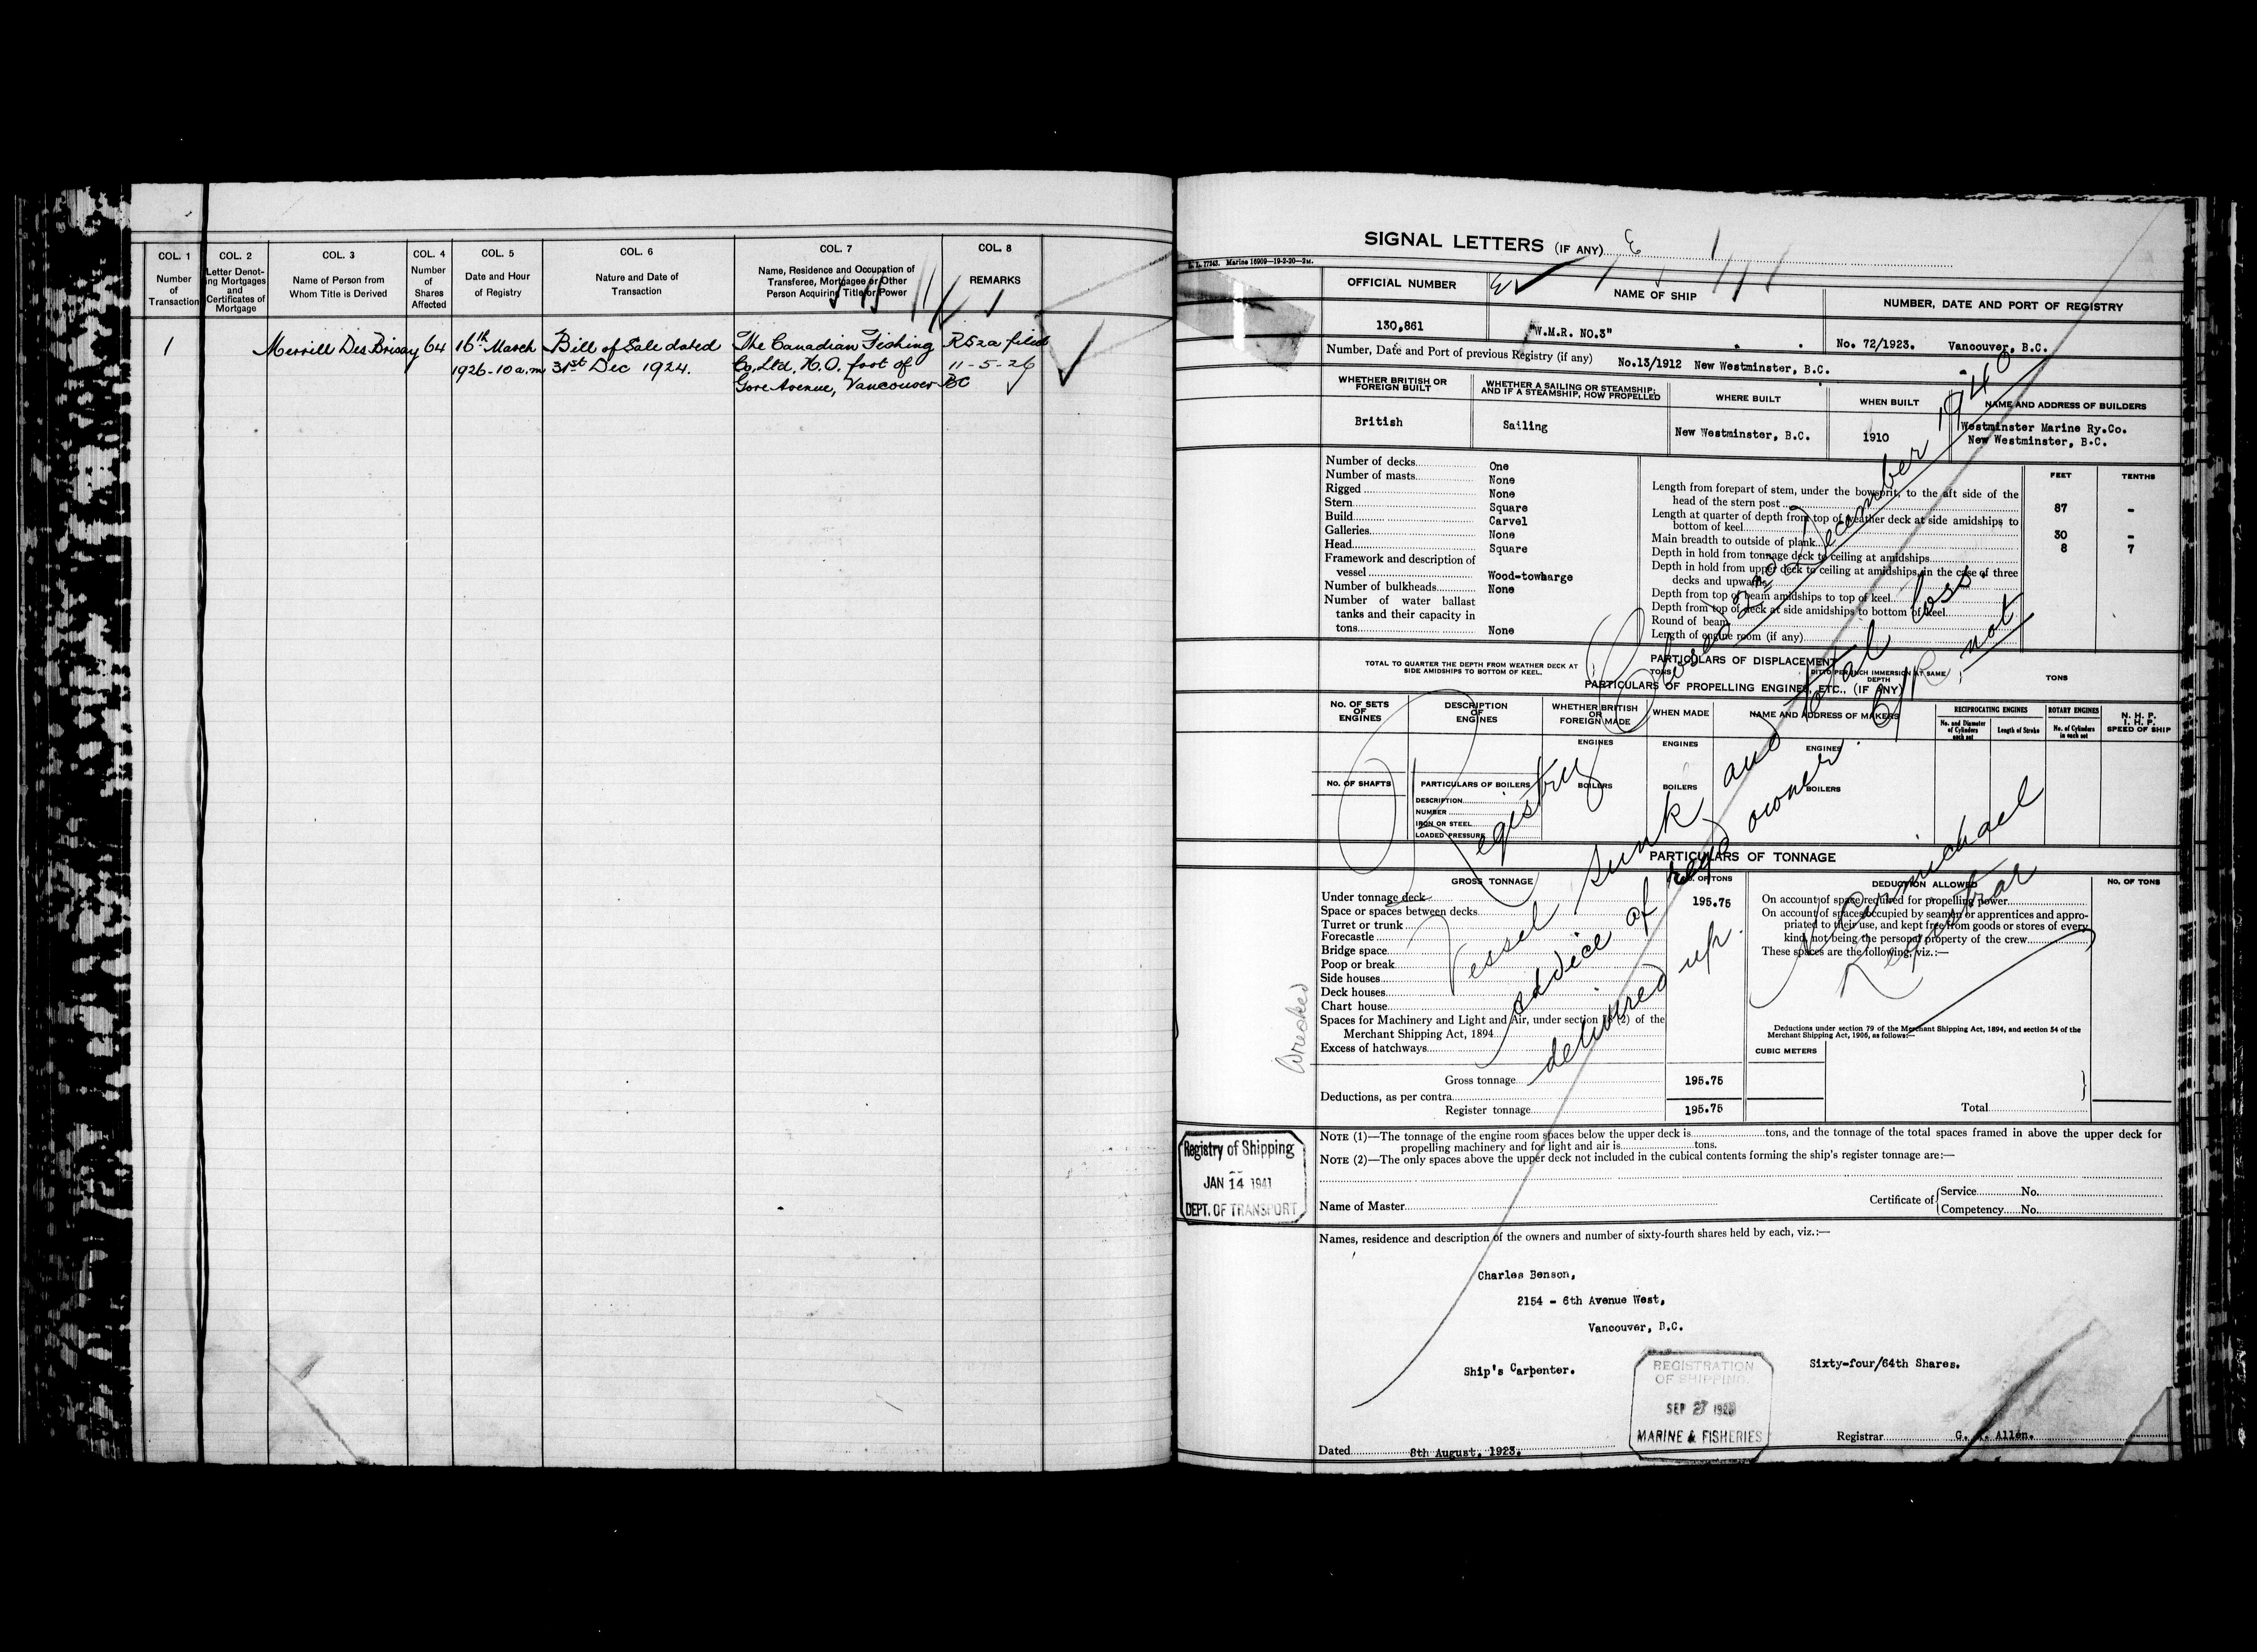 COL. 1
Number
of
Transaction
COL. 2
Letter Denot-
ing Mortgages
and
Certificates of
Mortgage
COL. 3
Name of Person from
Whom Title is Derived
COL. 4
Number
of
Shares
Affected
COL. 5
Date and Hour
of Registry
COL. 6
Nature and Date of
Transaction
COL. 7
Name, Residence and Occupation of
Transferee, Mortgagee or Other
Person Acquiring Title or Power
COL. 8
REMARKS
1 Merrill Des Brisay 64 16th March Bill of Sale dated The Canadian Fishing R52a filed
1926-10 a.m 31st Dec 1924. Co. Ltd. H.O. foot of 11-5-26
Gore Avenue, Vancouver BC
SIGNAL LETTERS (IF ANY)
Marine 16909-19-2-20-2M.
OFFICIAL NUMBER
NAME OF SHIP
NUMBER, DATE AND PORT OF REGISTRY
130,861
"W.M.R. NO.3"
No. 72/1923. Vancouver, B.C.
Number, Date and Port of previous Registry (if any) No.13/1912 New Westminster, B.C.
WHETHER BRITISH OR
FOREIGN BUILT
WHETHER A SAILING OR STEAMSHIP;
AND IF A STEAMSHIP, HOW PROPELLED
WHERE BUILT
WHEN BUILT
NAME AND ADDRESS OF BUILDERS
British
Sailing
New Westminster, B.C.
1910
Westminster Marine Ry.Co.
New Westminster, B.C.
Number of decks One
Number of masts None
Rigged None
Stern Square
Build Carvel
Galleries None
Head Square
Framework and description of
vessel Wood-towbarge
Number of bulkheads None
Number of water ballast
tanks and their capacity in
tons None
FEET TENTHS
Length from forepart of stem, under the bowsprit, to the aft side of the
head of the stern post 87 -
Length at quarter of depth from top of weather deck at side amidships to
bottom of keel
Main breadth to outside of plank 30 -
Depth in hold from tonnage deck to ceiling at amidships 8 7
Depth in hold from upper deck to ceiling at amidships, in the case of three
decks and upwards
Depth from top of beam amidships to top of keel
Depth from top of deck at side amidships to bottom of keel
Round of beam
Length of engine room (if any)
PARTICULARS OF DISPLACEMENT
TOTAL TO QUARTER THE DEPTH FROM WEATHER DECK AT
SIDE AMIDSHIPS TO BOTTOM OF KEEL.
TONS
DITTO PER INCH IMMERSION AT SAME
DEPTH
TONS
PARTICULARS OF PROPELLING ENGINES, ETC., (IF ANY)
No. OF SETS
OF
ENGINES
DESCRIPTION
OF
ENGINES
WHETHER BRITISH
OR
FOREIGN MADE
WHEN MADE
NAME AND ADDRESS OF MAKERS
RECIPROCATING ENGINES
No. and Diameter
of Cylinders
each set
Length of Stroke
ROTARY ENGINES
No. of Cylinders
in each set
N. H. P.
I. H. P.
SPEED OF SHIP
ENGINES
ENGINES
ENGINES
No. OF SHAFTS
PARTICULARS OF BOILERS
BOILERS
BOILERS
BOILERS
DESCRIPTION
NUMBER
IRON OR STEEL
LOADED PRESSURE
PARTICULARS OF TONNAGE
GROSS TONNAGE
No. OF TONS
DEDUCTION ALLOWED
No. OF TONS
Under tonnage deck 195.75
Space or spaces between decks
Turret or trunk
Forecastle
Bridge space
Poop or break
Side houses
Deck houses
Chart house
Spaces for Machinery and Light and Air, under section 78 (2) of the
Merchant Shipping Act, 1894
Excess of hatchways
Gross tonnage 195.75
Deductions, as per contra
Register tonnage 195.75
On account of space required for propelling power
On account of spaces occupied by seamen or apprentices and appro-
priated to their use, and kept free from goods or stores of every
kind, not being the personal property of the crew
These spaces are the following, viz.:—
Deductions under section 79 of the Merchant Shipping Act, 1894, and section 54 of the
Merchant Shipping Act, 1906, as follows:—
CUBIC METERS
Total
Registry Closed 2nd December 1940
Vessel sunk and total loss.
advice of regd owner. C/R not
delivered up.
Carmichael
Registrar
Wrecked
Registry of Shipping
JAN 14 1941
DEPT. OF TRANSPORT
NOTE (1)—The tonnage of the engine room spaces below the upper deck is tons, and the tonnage of the total spaces framed in above the upper deck for
propelling machinery and for light and air is tons.
NOTE (2)—The only spaces above the upper deck not included in the cubical contents forming the ship's register tonnage are:—
Name of Master
Certificate of
Service No.
Competency No.
Names, residence and description of the owners and number of sixty-fourth shares held by each, viz.:—
Charles Benson,
2154 - 6th Avenue West,
Vancouver, B.C.
Ship's Carpenter.
Sixty-four/64th Shares.
REGISTRATION
OF SHIPPING
SEP 27
MARINE & FISHERIES
Dated 8th August, 1923.
Registrar G. Allen.